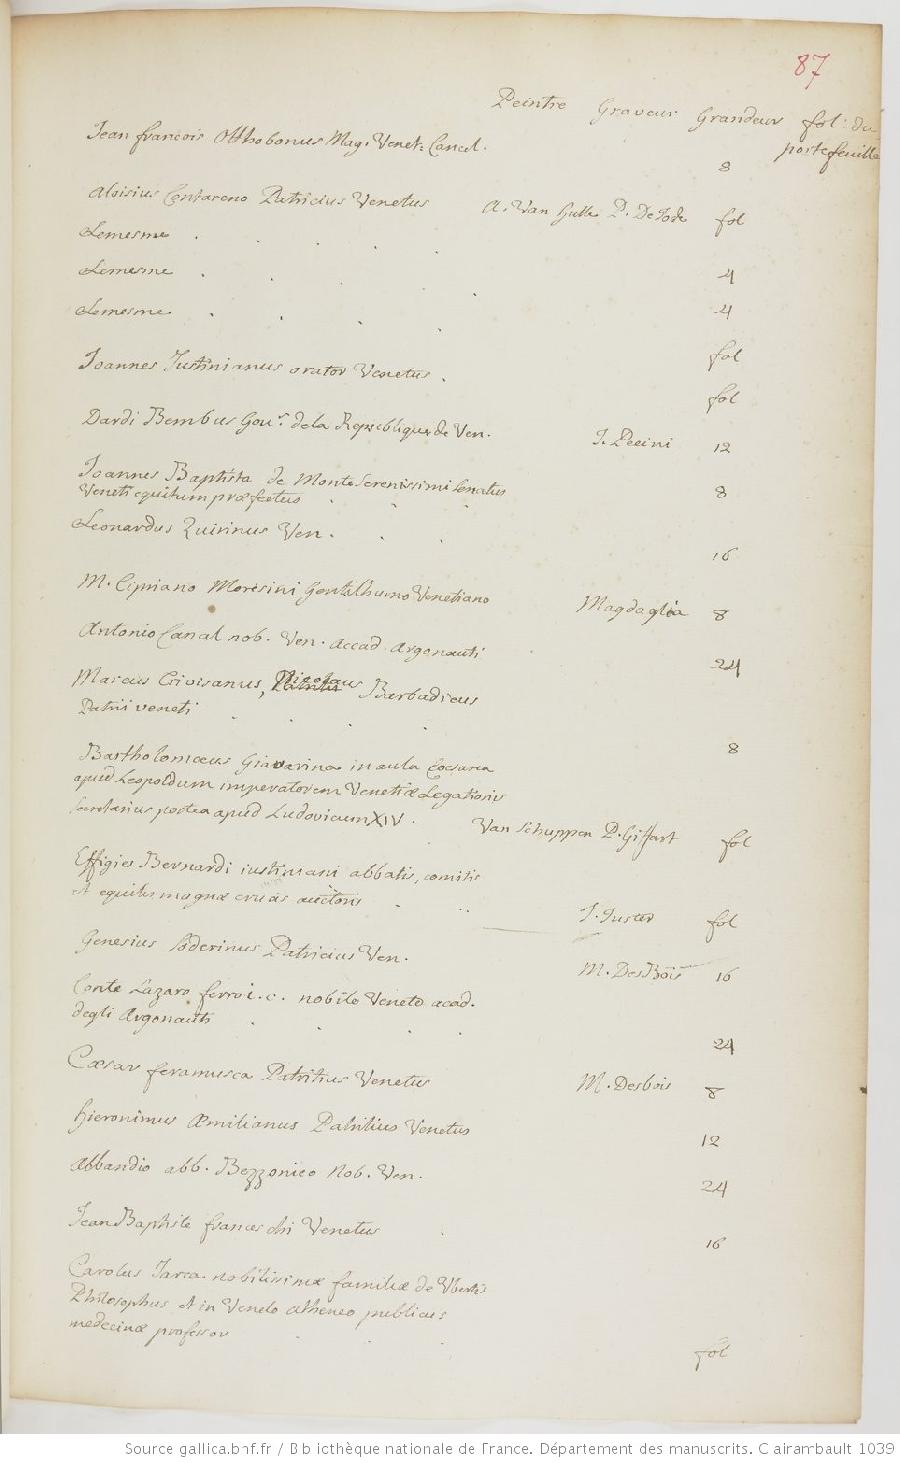 87
Peintre Graveur Grandeur fol. du
portefeuille
Jean francois Otthobonus Mag. Venet. Cancel. 8
Aloisius Contareno Patricius Venetus A. Van Hulle P. De Jode fol
Lemesme . . . . 4
Lemesme . . . . 4
Lemesme . . . . fol
Joannes Justinianus orator Venetus . fol
Dardi Bembus Gour. de la Republique de Ven. J. Pecini 12
Joannes Baptista de Monte Serenissimi Senatus
Veneti equitum præfectus . . . 8
Leonardus Quirinus Ven. . . 16
M. Cipriano Moresini Gentilhumo Venetiano Magdaglia 8
Antonio Canal nob. Ven. Accad. Argonauti 24
Marcus Civisanus, Nicolaus Barbadicus
Patrii veneti . . . 8
Bartholomæus Giavarina in aula Cæsarea
apud Leopoldum imperatorem Venetiæ Legationis
secretarius postea apud Ludovicum XIV . Van Schuppen P. Giffart fol
Effigies Bernardi iustiniani abbatis, comitis
et equitis magnæ crucis auctoris . . J. Juster fol
Genesius Soderinus Patricius Ven. M. DesBois 16
Conte Lazaro ferro i. c. nobile Veneto acad.
degli Argonauti . . . . 24
Cæsar feramusca Patritius Venetus M. Desbois 8
Hieronimus Æmilianus Patritius Venetus 12
Abbandio abb. Bezzonico Nob. Ven. 24
Jean Baptiste franceschi Venetus . 16
Carolus Tarca nobilissimæ familiæ de Ubertis
Philosophus et in Veneto atheneo publicus
medecinæ professor . . . fol
Source gallica.bnf.fr / Bibliothèque nationale de France. Département des manuscrits. Clairambault 1039